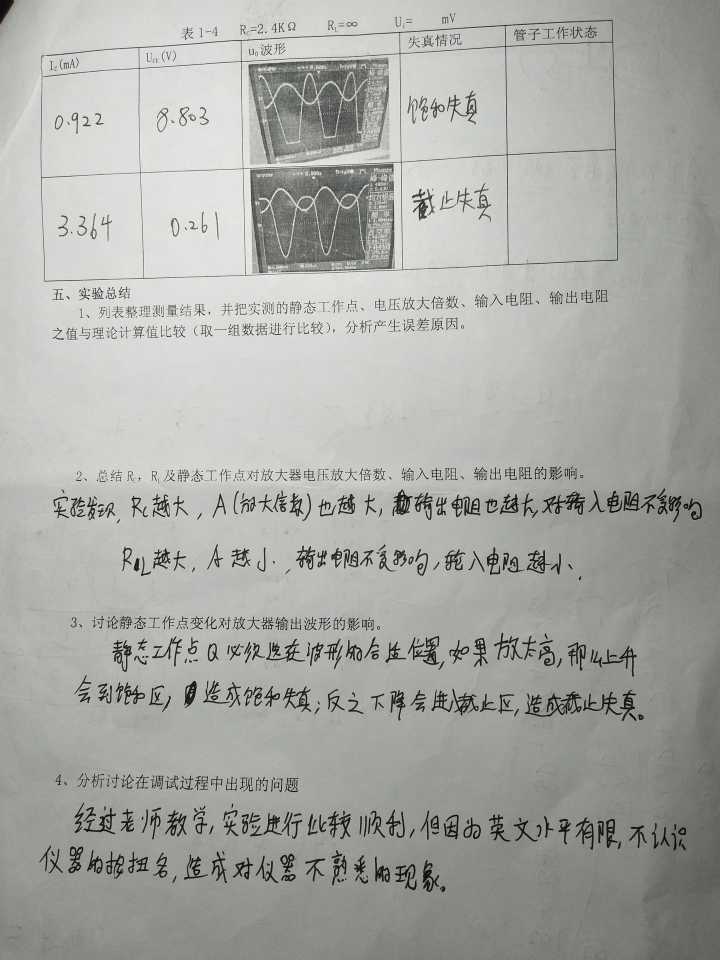 表 1-4 Rc=2.4KΩ RL=∞ Ui= mV
Ic(mA) UCE(V) u0波形 失真情况 管子工作状态
0.922 8.803 饱和失真
3.364 0.261 截止失真
五、实验总结
1、列表整理测量结果，并把实测的静态工作点、电压放大倍数、输入电阻、输出电阻
之值与理论计算值比较（取一组数据进行比较），分析产生误差原因。
2、总结Rc，RL及静态工作点对放大器电压放大倍数、输入电阻、输出电阻的影响。
实验发现，Rc越大，A(放大倍数)也越大，输出电阻也越大，对输入电阻不受影响
RL越大，A越小，输出电阻不受影响，输入电阻越小、
3、讨论静态工作点变化对放大器输出波形的影响。
静态工作点Q必须选在波形的合适位置，如果放太高，那么上升
会到饱和区，造成饱和失真；反之下降会进入截止区，造成截止失真。
4、分析讨论在调试过程中出现的问题
经过老师教学，实验进行比较顺利，但因为英文水平有限，不认识
仪器的按扭名，造成对仪器不熟悉的现象。